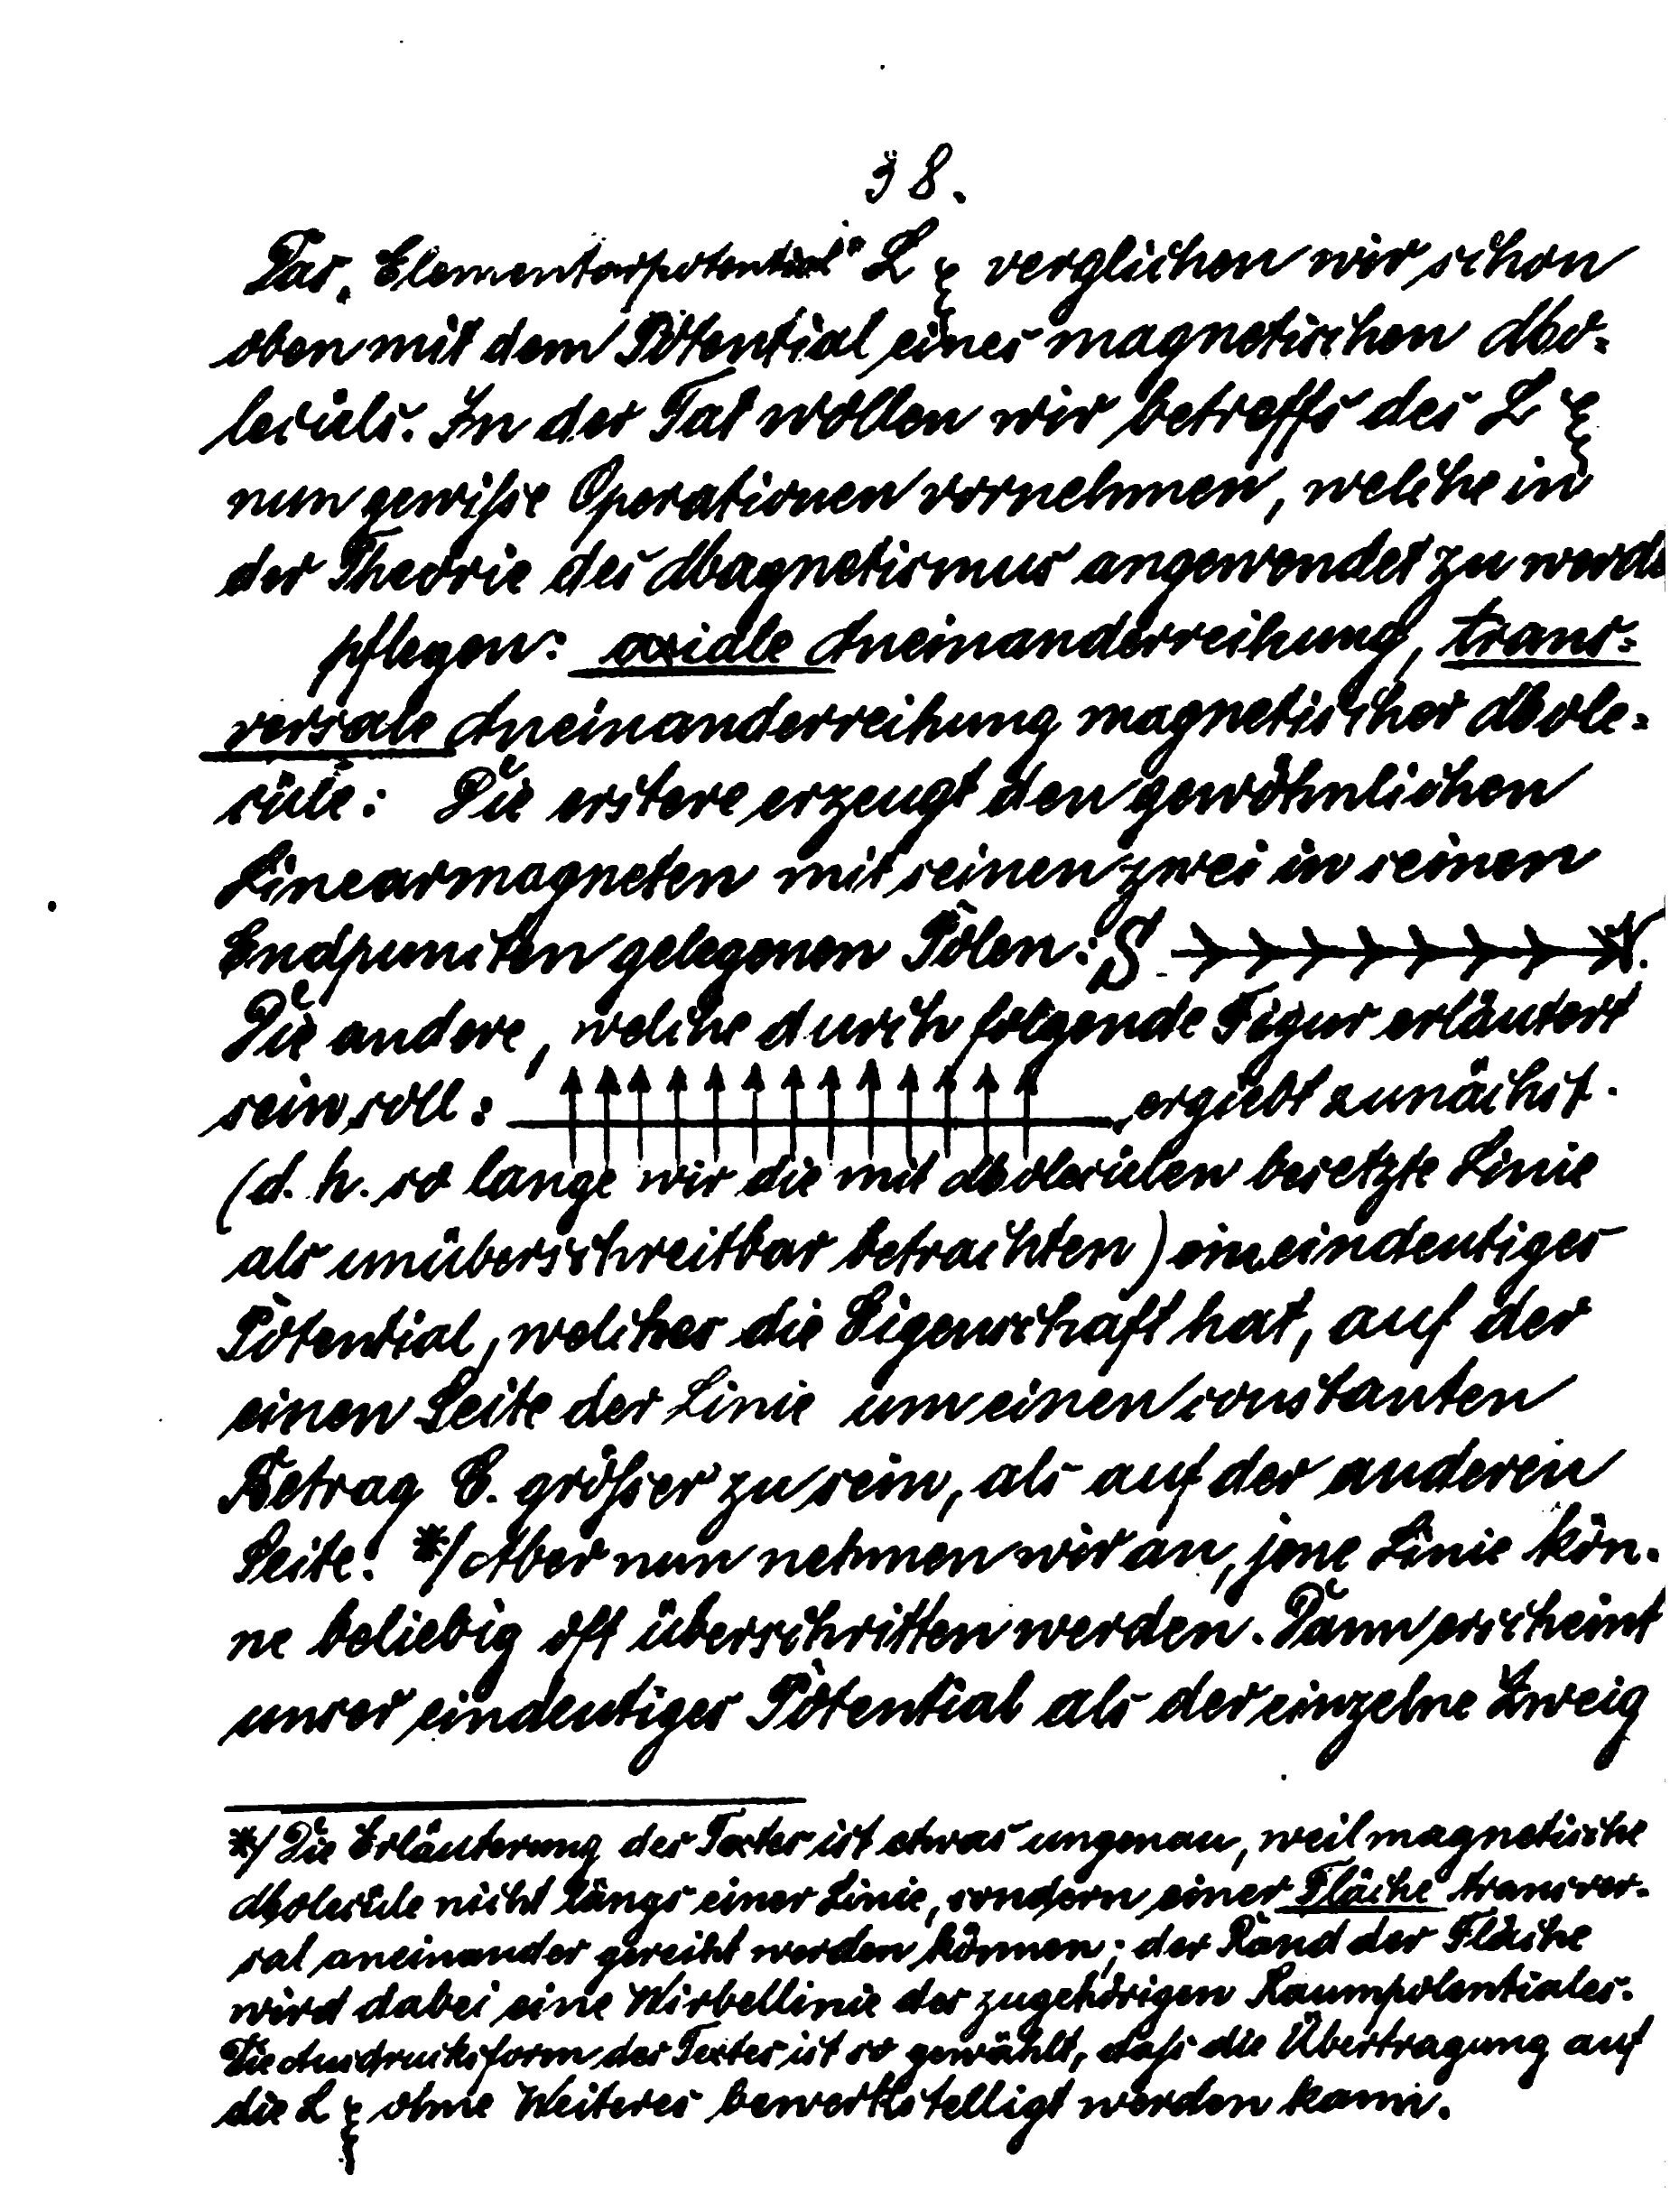 38.
Das „Elementarpotential" L ξ verglichen wir schon
oben mit dem Potential eines magnetischen Mo-
leculs. In der Tat wollen wir betreffs des L ξ
nun gewisse Operationen vornehmen, welche in
der Theorie des Magnetismus angewendet zu werde
pflegen: axiale Aneinanderreihung, trans-
versale Aneinanderreihung magnetischer Mole-
cüle: Die erstere erzeugt den gewöhnlichen
Linearmagneten mit seinen zwei in seinen
Endpuncten gelegenen Polen: S N.
Die andere, welche durch folgende Figur erläutert
sein soll: ergiebt zunächst
(d. h. so lange wir die mit Molecülen besetzte Linie
als unüberschreitbar betrachten) ein eindeutiges
Potential, welches die Eigenschaft hat, auf der
einen Seite der Linie um einen constanten
Betrag C. größer zu sein, als auf der anderen
Seite. *) Aber nun nehmen wir an, jene Linie kön-
ne beliebig oft überschritten werden. Dann erscheint
unser eindeutiges Potential als der einzelne Zweig
*) Die Erläuterung des Textes ist etwas ungenau, weil magnetische
Molecüle nicht längs einer Linie, sondern einer Fläche transver-
sal aneinander gereiht werden können; der Rand der Fläche
wird dabei eine Wirbellinie des zugehörigen Raumpotentiales.
Die Ausdrucksform des Textes ist so gewählt, daß die Übertragung auf
die L ξ ohne Weiteres bewerkstelligt werden kann.